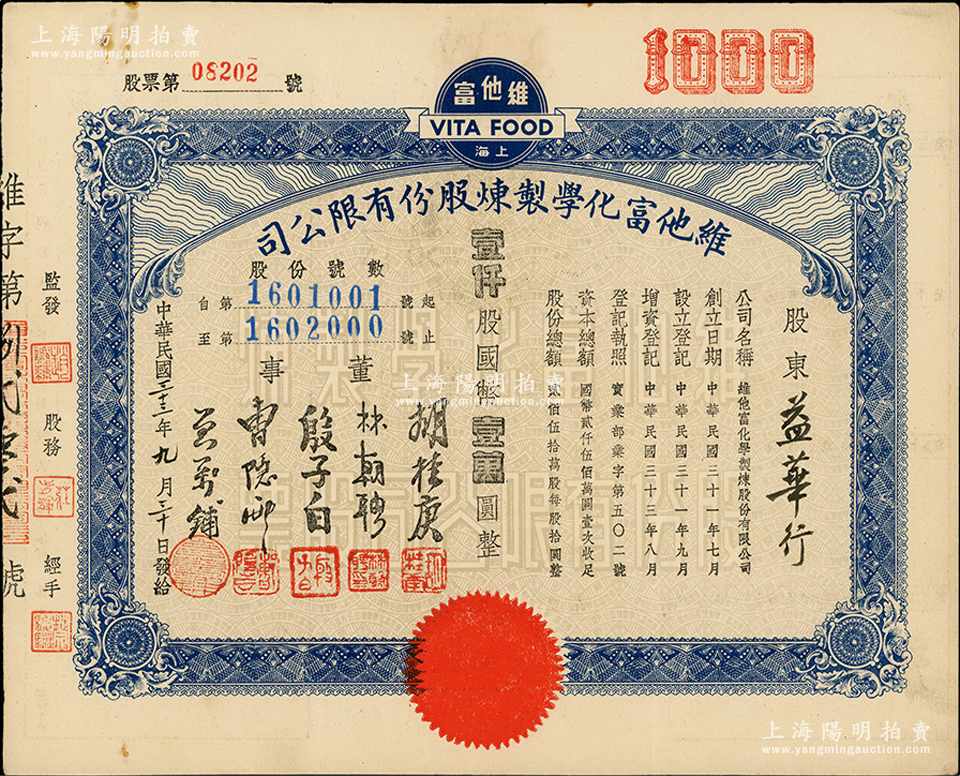 上海陽明拍賣
www.yangmingauction.com
1000
股票第 08202 號
維他富
VITA FOOD
上海
維他富化學製煉股份有限公司
股東 益華行
公司名稱 維他富化學製煉股份有限公司
創立日期 中華民國三十一年七月
設立登記 中華民國三十一年九月
增資登記 中華民國三十三年八月
登記執照 實業部業字第五〇二號
資本總額 國幣貳仟伍佰萬圓壹次收足
股份總額 貳佰伍拾萬股每股拾圓整
壹仟股國幣壹萬圓整
股份號數
自第 1601001 號起
至第 1602000 號止
董事
胡桂庚
林朝聘
殷子白
曹隱
中華民國三十三年九月三十日發給
監發
股務
經手
維字第 號
上海陽明拍賣
www.yangmingauction.com
上海陽明拍賣
www.yangmingauction.com